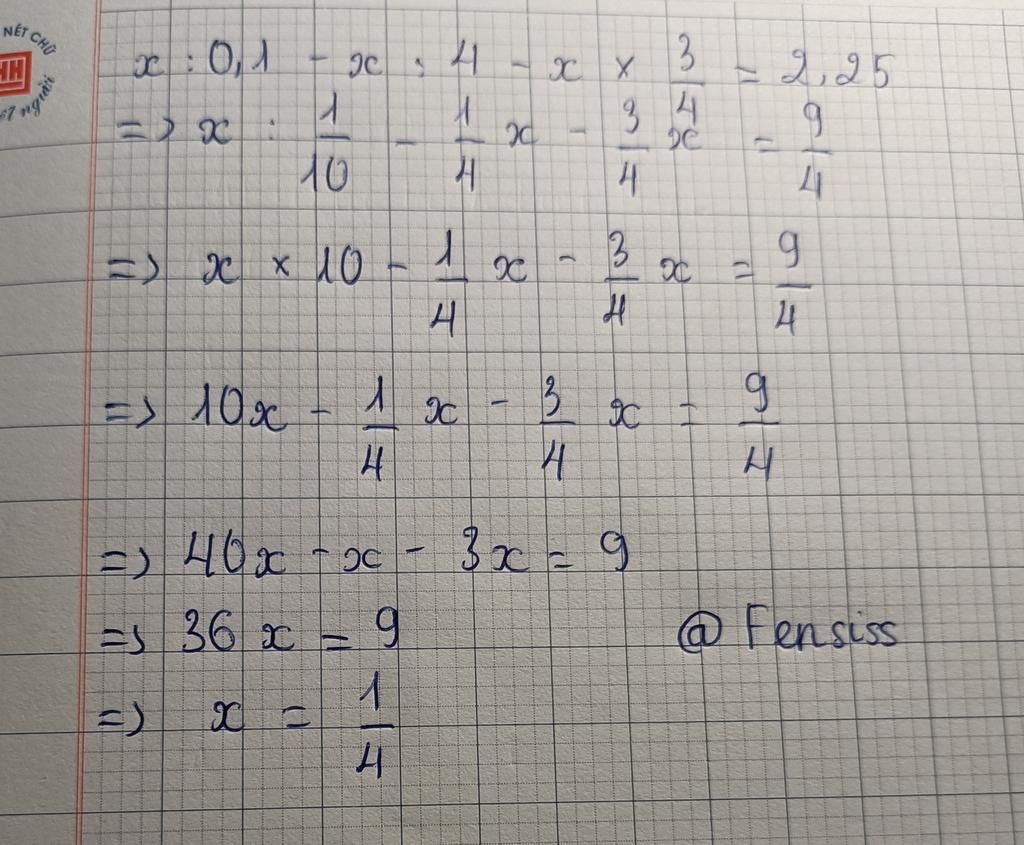 NÉT CHỮ
HH
x : 0,1 - x : 4 - x × 3/4 = 2,25
=> x : 1/10 - 1/4 x - 3/4 x = 9/4
=> x × 10 - 1/4 x - 3/4 x = 9/4
=> 10x - 1/4 x - 3/4 x = 9/4
=> 40x - x - 3x = 9
=> 36x = 9
@ Fensiss
=> x = 1/4